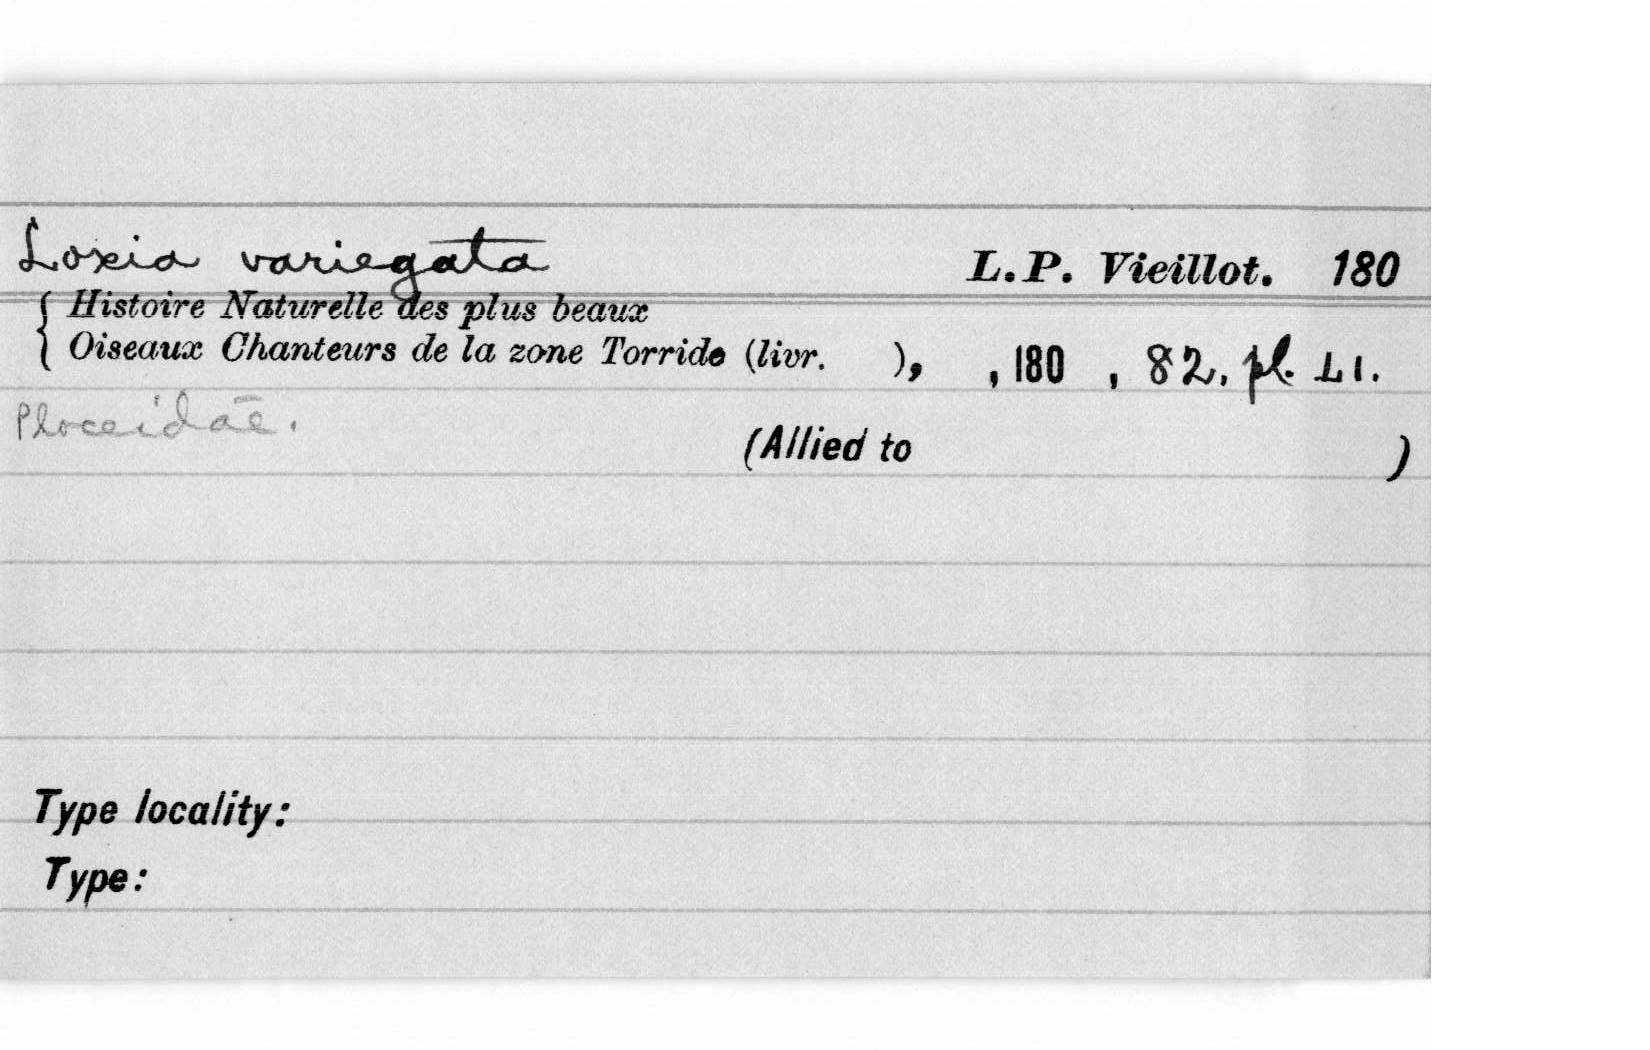 Loxia variegata L.P. Vieillot. 180
Histoire Naturelle des plus beaux
Oiseaux Chanteurs de la zone Torride (livr. ), , 180 , 82, pl. LI.
Ploceidae.
(Allied to )
Type locality:
Type: